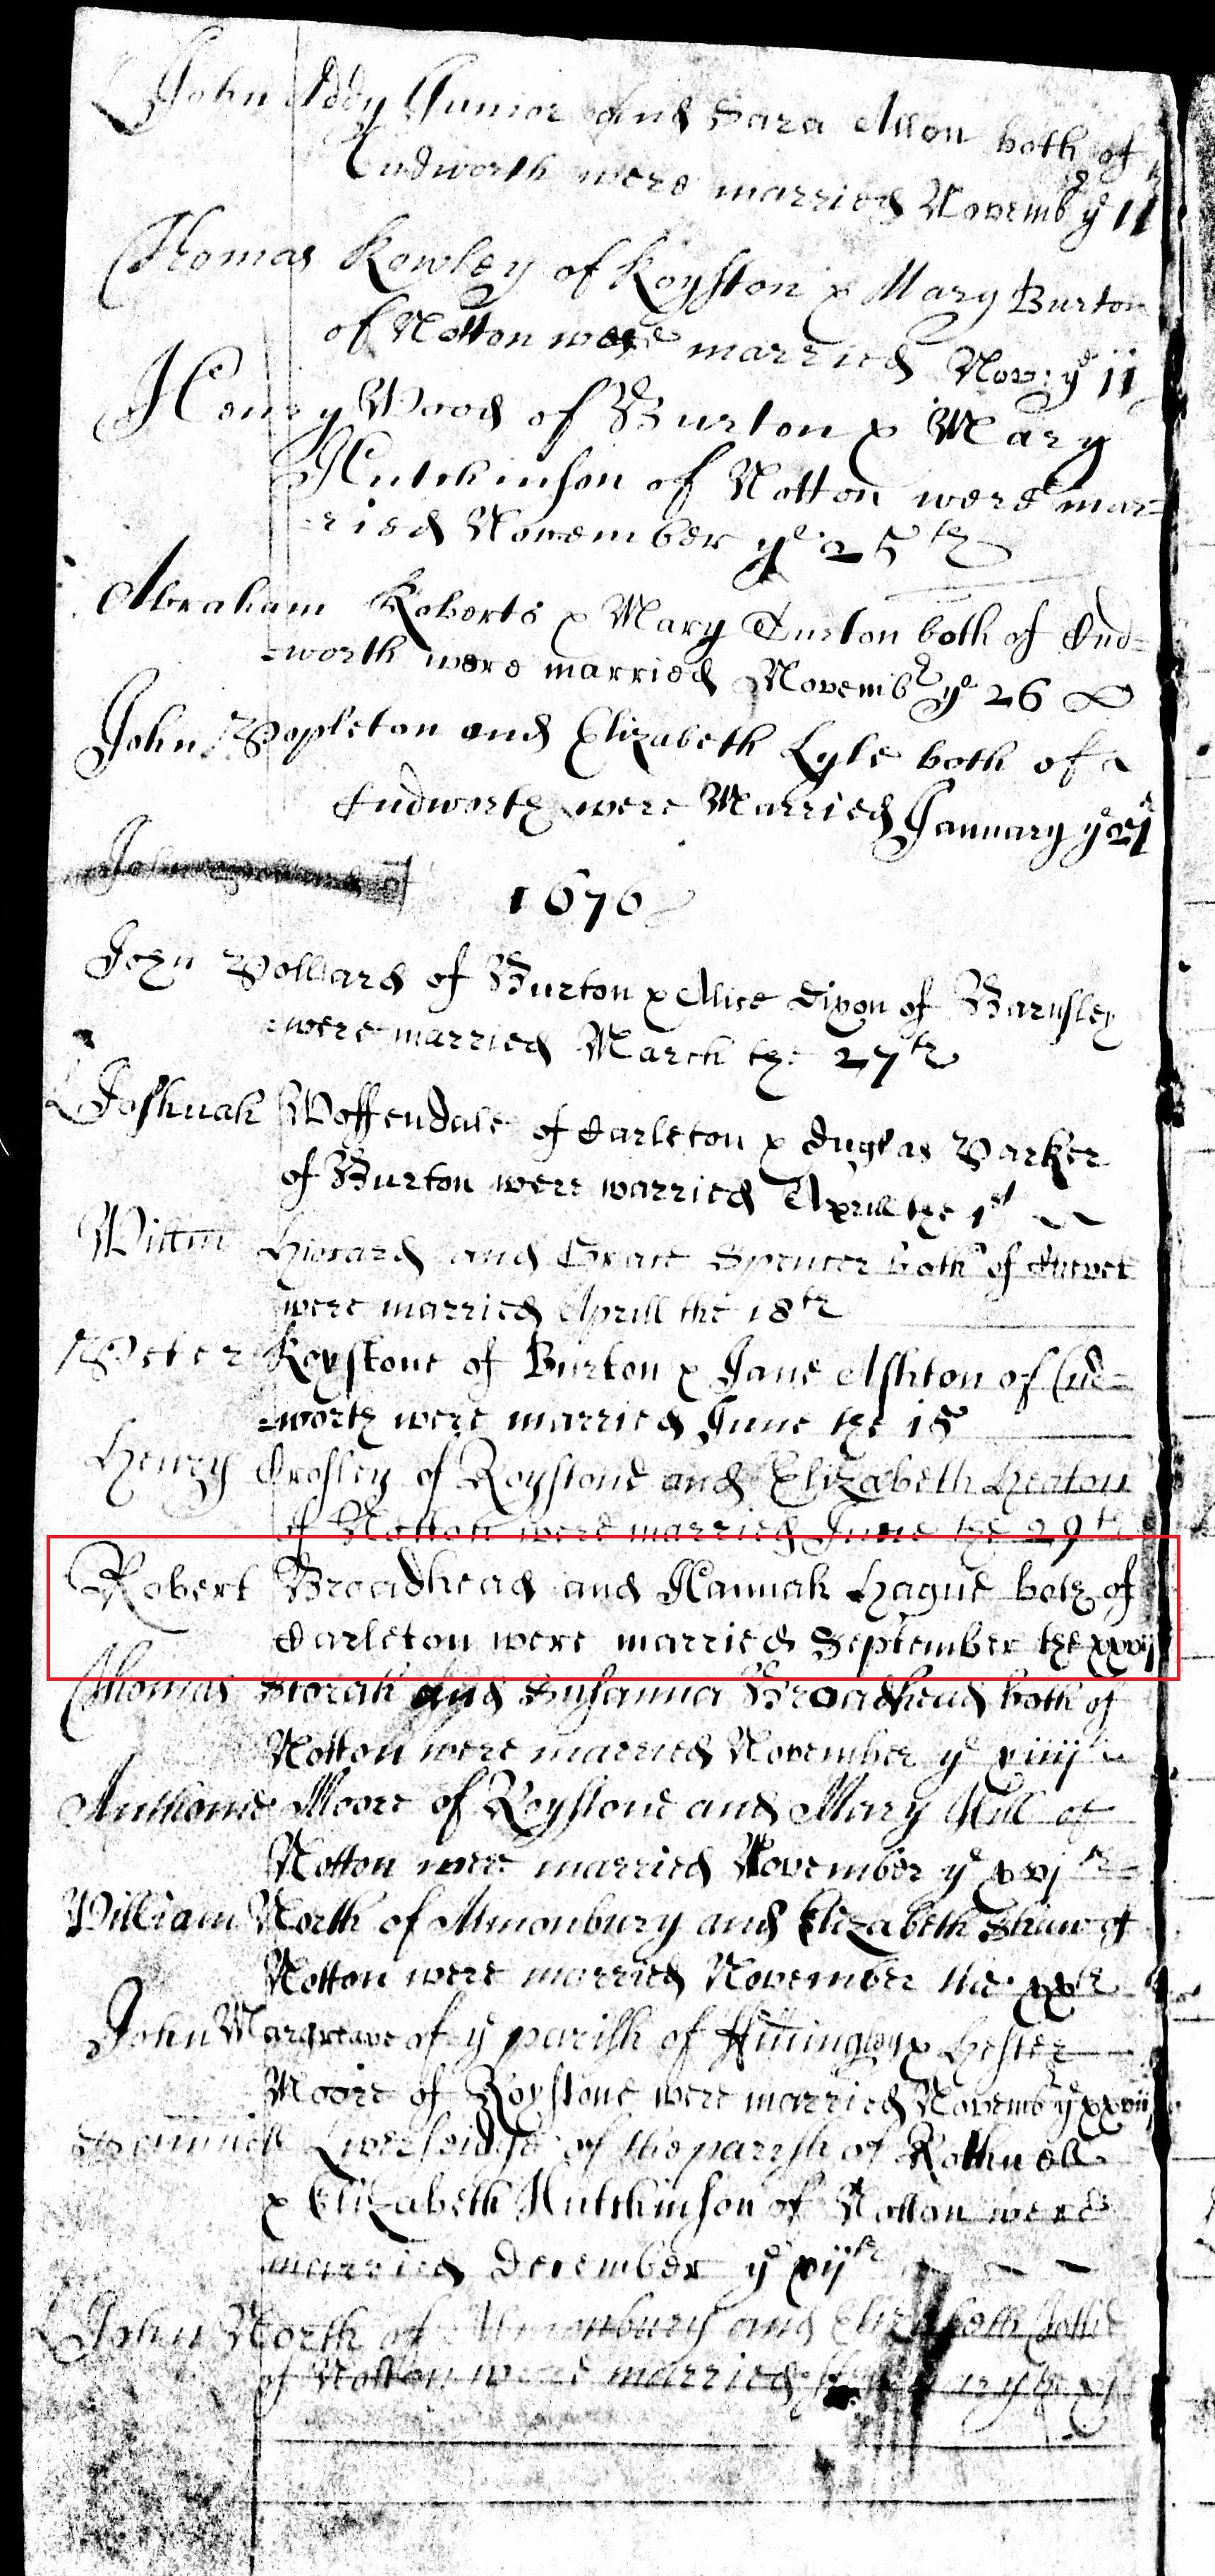 John Addy Junior and Sara Allon both of
Cudworth were married Novemb ye 11
Thomas Rowley of Royston x Mary Burton
of Notton were married Nov: ye 11
Henry Wood of Burton x Mary
Hutchinson of Notton were mar=
=ried November ye 25th
Abraham Roberts x Mary Turton both of Cud=
=worth were married Novembr ye 26
John Popleton and Elizabeth Lyle both of
Cudworth were Married January ye 21
John
1676
John Pollard of Burton x Alice Dixon of Barnsley
were married March the 27th
Joshuah Woffendale of Carleton x Parker
of Burton were warried Aprill the 1st
Willm Howard and Grace Spencer both of Chevet
were married Aprill the 18th
Peter Roystone of Burton x Jane Ashton of Cud=
=worth were married June the 18
Henry Crosley of Roystone and Elizabeth Heaton
of Notton were married June the 29th
Robert Broadhead and Hannah Hague both of
Carleton were married September the xxvij
Thomas Storah and Susanna Broadhead both of
Notton were married November ye xiiij
Anthonie Moore of Roystone and Mary Hill of
Notton were married November ye xvj th
William North of Almonbury and Elizabeth Shaw of
Notton were married November the xxth
John Margreave of ye parish of x Hester
Moore of Roystone were married Novembr ye xxvij
Liversidge of the parish of Rothwell
x Elizabeth Hutchinson of Notton were
married December ye xijth
John North of Almonbury and Elizabeth
of Notton were married